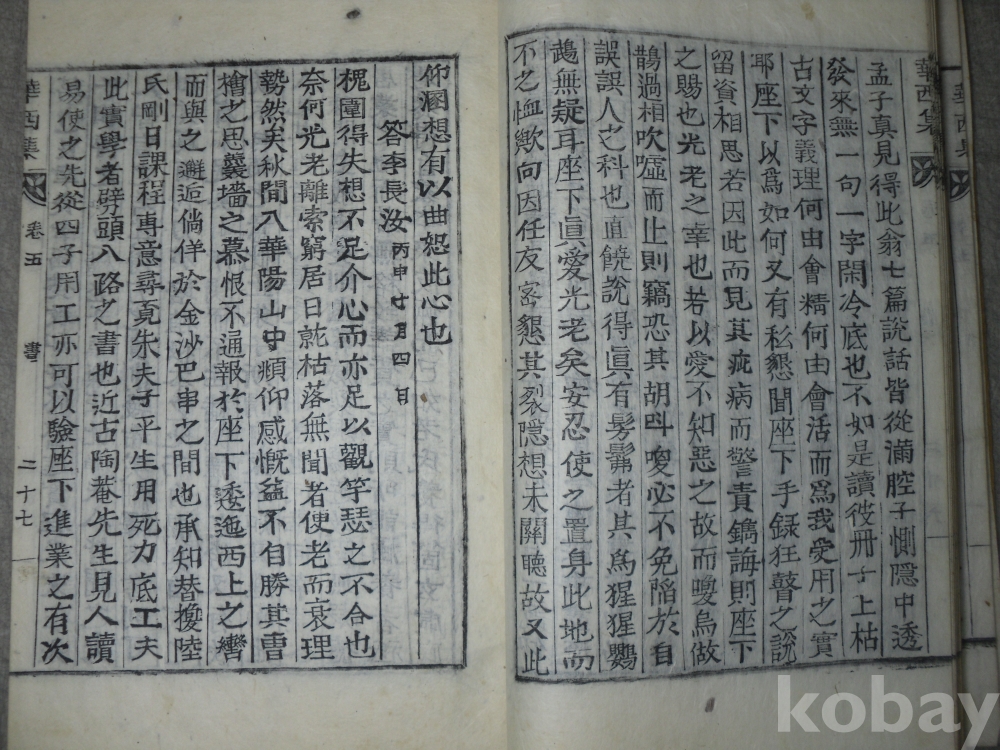 孟子真見得此翁七篇說話皆從滿腔子惻隱中透
發來無一句一字閑冷底也不如是讀彼冊子上枯
古文字義理何由會精何由會活而爲我受用之實
耶座下以爲如何又有私懇聞座下手錄狂瞽之說
留資相思若因此而見其疵病而警責鐫誨則座下
之賜也光老之幸也若以愛不知惡之故而曖烏做
鵲過相吹噓而止則竊恐其胡叫唆必不免陷於自
誤誤人之科也直饒說得眞有髣髴者其爲猩猩鸚
鵡無疑耳座下眞愛光老矣安忍使之置身此地而
不之恤歟向因任友密懇其裂隱想未關聽故又此
仰溷想有以曲恕此心也
答李長汝 丙申十月四日
槐圍得失想不足介心而亦足以觀竽瑟之不合也
奈何光老離索窮居日就枯落無聞者使老而衰理
勢然矣秋間入華陽山中頫仰感慨益不自勝其曺
檜之思羹墻之慕恨不通報於座下逶迤西上之轡
而與之邂逅倘佯於金沙巴串之間也承知替擾陸
氏剛日課程專意尋覔朱夫子平生用死力底工夫
此實學者劈頭入路之書也近古陶菴先生見人讀
易使之先從四子用工亦可以驗座下進業之有次
華西集
卷五
書
二十七
華西集
kobay